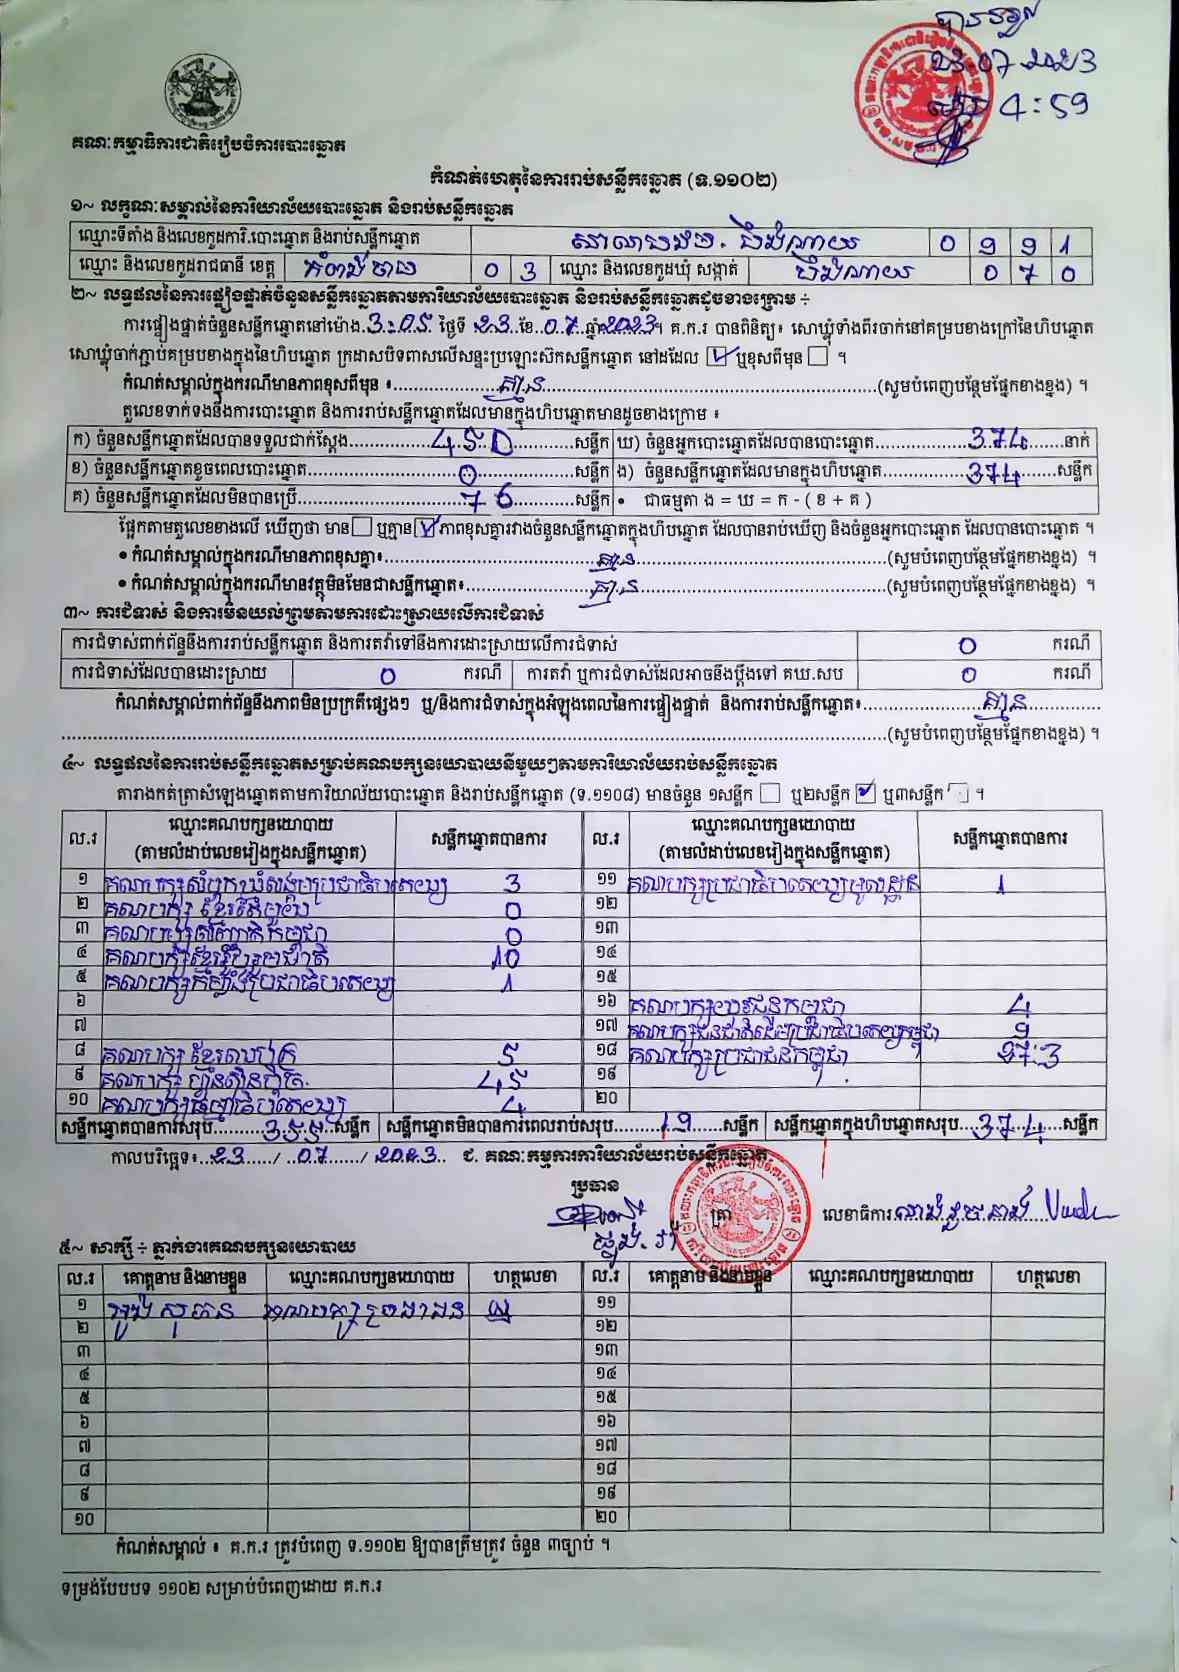 បានទទួល
23.07.2023
ម៉ោង 4:59
គណៈកម្មាធិការជាតិរៀបចំការបោះឆ្នោត
កំណត់ហេតុនៃការរាប់សន្លឹកឆ្នោត (ទ.១១០២)
១~ លក្ខណៈសម្គាល់នៃការិយាល័យបោះឆ្នោត និងរាប់សន្លឹកឆ្នោត
ឈ្មោះទីតាំង និងលេខកូដការិ.បោះឆ្នោត និងរាប់សន្លឹកឆ្នោត 0 9 9 1
ឈ្មោះ និងលេខកូដរាជធានី ខេត្ត កំពង់ចាម 0 3 ឈ្មោះ និងលេខកូដឃុំ សង្កាត់ 0 7 0
២~ លទ្ធផលនៃការផ្ទៀងផ្ទាត់ចំនួនសន្លឹកឆ្នោតតាមការិយាល័យបោះឆ្នោត និងរាប់សន្លឹកឆ្នោតដូចខាងក្រោម ÷
ការផ្ទៀងផ្ទាត់ចំនួនសន្លឹកឆ្នោតនៅម៉ោង 3:05 ថ្ងៃទី 23 ខែ 07 ឆ្នាំ 2023។ គ.ក.រ បានពិនិត្យ៖ សោឃ្លុំទាំងពីរចាក់នៅគម្របខាងក្រៅនៃហិបឆ្នោត
សោឃ្លុំចាក់ភ្ជាប់គម្របខាងក្នុងនៃហិបឆ្នោត ក្រដាសបិទពាសលើសន្ទះប្រឡោះស៊កសន្លឹកឆ្នោត នៅដដែល ☑ ឬខុសពីមុន ☐ ។
កំណត់សម្គាល់ក្នុងករណីមានភាពខុសពីមុន ៖ គ្មាន (សូមបំពេញបន្ថែមផ្នែកខាងខ្នង) ។
តួលេខទាក់ទងនឹងការបោះឆ្នោត និងការរាប់សន្លឹកឆ្នោតដែលមានក្នុងហិបឆ្នោតមានដូចខាងក្រោម ៖
ក) ចំនួនសន្លឹកឆ្នោតដែលបានទទួលជាក់ស្តែង 450 សន្លឹក ឃ) ចំនួនអ្នកបោះឆ្នោតដែលបានបោះឆ្នោត 374 នាក់
ខ) ចំនួនសន្លឹកឆ្នោតខូចពេលបោះឆ្នោត 0 សន្លឹក ង) ចំនួនសន្លឹកឆ្នោតដែលមានក្នុងហិបឆ្នោត 374 សន្លឹក
គ) ចំនួនសន្លឹកឆ្នោតដែលមិនបានប្រើ 76 សន្លឹក • ជាធម្មតា ង = ឃ = ក - ( ខ + គ )
ផ្អែកតាមតួលេខខាងលើ ឃើញថា មាន ☐ ឬគ្មាន ☑ ភាពខុសគ្នារវាងចំនួនសន្លឹកឆ្នោតក្នុងហិបឆ្នោត ដែលបានរាប់ឃើញ និងចំនួនអ្នកបោះឆ្នោត ដែលបានបោះឆ្នោត ។
• កំណត់សម្គាល់ក្នុងករណីមានភាពខុសគ្នា៖ គ្មាន (សូមបំពេញបន្ថែមផ្នែកខាងខ្នង) ។
• កំណត់សម្គាល់ក្នុងករណីមានវត្ថុមិនមែនជាសន្លឹកឆ្នោត៖ គ្មាន (សូមបំពេញបន្ថែមផ្នែកខាងខ្នង) ។
៣~ ការជំទាស់ និងការមិនយល់ព្រមតាមការដោះស្រាយលើការជំទាស់
ការជំទាស់ពាក់ព័ន្ធនឹងការរាប់សន្លឹកឆ្នោត និងការតវ៉ាទៅនឹងការដោះស្រាយលើការជំទាស់ 0 ករណី
ការជំទាស់ដែលបានដោះស្រាយ 0 ករណី ការតវ៉ា ឬការជំទាស់ដែលអាចនឹងប្តឹងទៅ គឃ.សប 0 ករណី
កំណត់សម្គាល់ពាក់ព័ន្ធនឹងភាពមិនប្រក្រតីផ្សេងៗ ឬ/និងការជំទាស់ក្នុងអំឡុងពេលនៃការផ្ទៀងផ្ទាត់ និងការរាប់សន្លឹកឆ្នោត៖ គ្មាន
(សូមបំពេញបន្ថែមផ្នែកខាងខ្នង) ។
៤~ លទ្ធផលនៃការរាប់សន្លឹកឆ្នោតសម្រាប់គណបក្សនយោបាយនីមួយៗតាមការិយាល័យរាប់សន្លឹកឆ្នោត
តារាងកត់ត្រាសំឡេងឆ្នោតតាមការិយាល័យបោះឆ្នោត និងរាប់សន្លឹកឆ្នោត (ទ.១១០៨) មានចំនួន ១សន្លឹក ☐ ឬ២សន្លឹក ☑ ឬ៣សន្លឹក ☐ ។
ល.រ ឈ្មោះគណបក្សនយោបាយ (តាមលំដាប់លេខរៀងក្នុងសន្លឹកឆ្នោត) សន្លឹកឆ្នោតបានការ ល.រ ឈ្មោះគណបក្សនយោបាយ (តាមលំដាប់លេខរៀងក្នុងសន្លឹកឆ្នោត) សន្លឹកឆ្នោតបានការ
១ គណបក្សសំបុកឃ្មុំសង្គមប្រជាធិបតេយ្យ 3 ១១ គណបក្សប្រជាធិបតេយ្យមូលដ្ឋាន 1
២ គណបក្ស ខ្មែរតែមួយ 0 ១២
៣ 0 ១៣
៤ គណបក្សខ្មែររួបរួមជាតិ 10 ១៤
៥ គណបក្សកម្លាំងប្រជាធិបតេយ្យ 1 ១៥
៦ ១៦ គណបក្សយុវជនកម្ពុជា 4
៧ ១៧ គណបក្សជនជាតិដើមប្រជាធិបតេយ្យកម្ពុជា 9
៨ គណបក្ស ខ្មែរអភិរក្ស 5 ១៨ គណបក្សប្រជាជនកម្ពុជា 273
៩ គណបក្ស ហ៊្វុនស៊ិនប៉ិច 45 ១៩
១០ គណបក្សធម្មាធិបតេយ្យ 4 ២០
សន្លឹកឆ្នោតបានការសរុប 355 សន្លឹក សន្លឹកឆ្នោតមិនបានការពេលរាប់សរុប 19 សន្លឹក សន្លឹកឆ្នោតក្នុងហិបឆ្នោតសរុប 374 សន្លឹក
កាលបរិច្ឆេទ៖ 23 / 07 / 2023 ជ. គណៈកម្មការការិយាល័យរាប់សន្លឹកឆ្នោត
ប្រធាន
ត្រា លេខាធិការ
៥~ សាក្សី ÷ ភ្នាក់ងារគណបក្សនយោបាយ
ល.រ គោត្តនាម និងនាមខ្លួន ឈ្មោះគណបក្សនយោបាយ ហត្ថលេខា ល.រ គោត្តនាម និងនាមខ្លួន ឈ្មោះគណបក្សនយោបាយ ហត្ថលេខា
១ គណបក្សប្រជាជន ១១
២ ១២
៣ ១៣
៤ ១៤
៥ ១៥
៦ ១៦
៧ ១៧
៨ ១៨
៩ ១៩
១០ ២០
កំណត់សម្គាល់ ៖ គ.ក.រ ត្រូវបំពេញ ទ.១១០២ ឱ្យបានត្រឹមត្រូវ ចំនួន ៣ច្បាប់ ។
ទម្រង់បែបបទ ១១០២ សម្រាប់បំពេញដោយ គ.ក.រ